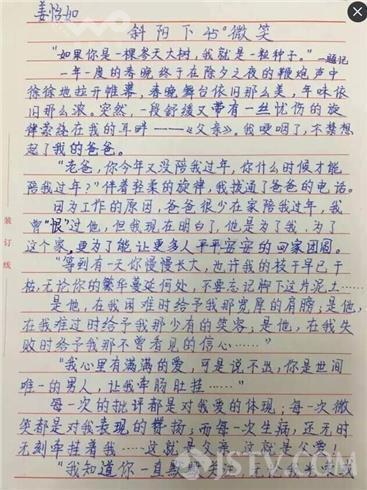 姜怡如
斜阳下45°微笑
"如果你是一棵参天大树,我就是一粒种子。"—题记
一年一度的春晚终于在除夕之夜的鞭炮声中
徐徐地拉开帷幕,春晚舞台依旧那么美,年味依
旧那么浓。突然,一段舒缓又带有一丝忧伤的旋
律萦绕在我的耳畔——《父亲》。我哽咽了,不禁想
起了我的爸爸。
"老爸,你今年又没陪我过年,你什么时候才能
陪我过年?"伴着轻柔的旋律,我拨通了爸爸的电话。
因为工作的原因,爸爸很少在家陪我过年,我
曾"恨"过他,但我现在明白了,他是为了我、为了
这个家,更为了能让更多人平平安安的回家团圆。
"等到有一天你慢慢长大,也许我的枝干早已干
枯,无论你的繁华蔓延何处,不要忘记脚下这片泥土……
是他,在我困难时给予我那宽厚的肩膀;是他,
在我难过时给予我那少有的笑容;是他,在我失
败时给予我那不曾看见的信心……"
"我心里有满满的爱,可是说不出,你是世间
唯一的男人,让我牵肠肚挂……"
每一次的批评都是对我爱的体现;每一次微
笑都是对我表现的赞扬;而每一次生病,还无时
无刻牵挂着我……这就是父亲,这就是父爱。
"我知道你一直
装订线
JSTV.COM